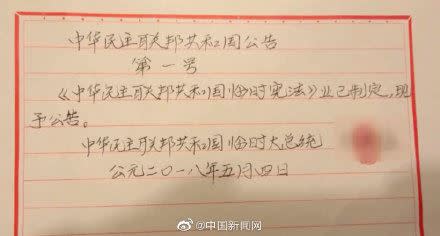 中华民主联邦共和国公告
第一号
《中华民主联邦共和国临时宪法》业已制定,现
予公告。
中华民主联邦共和国临时大总统
公元二〇一八年五月四日
@中国新闻网